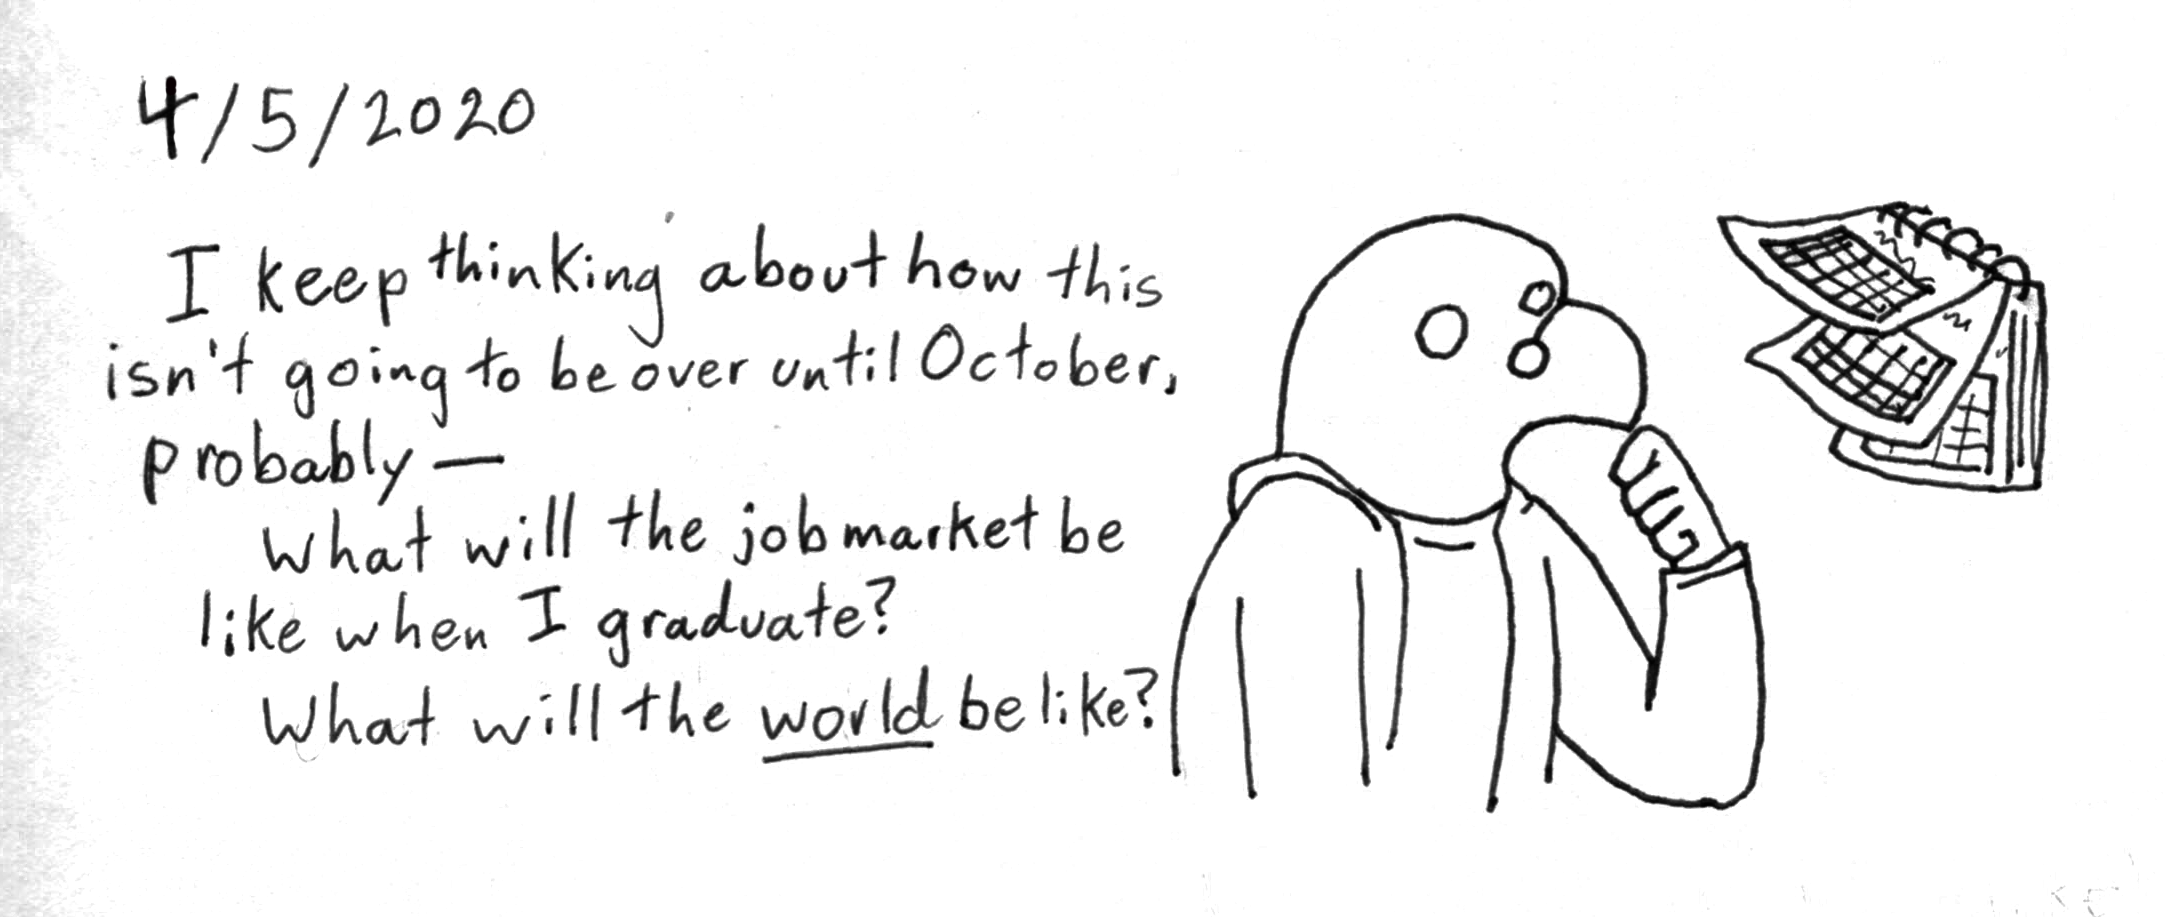 4/5/2020
I keep thinking about how this
isn't going to be over until October,
probably—
What will the job market be
like when I graduate?
What will the world be like?